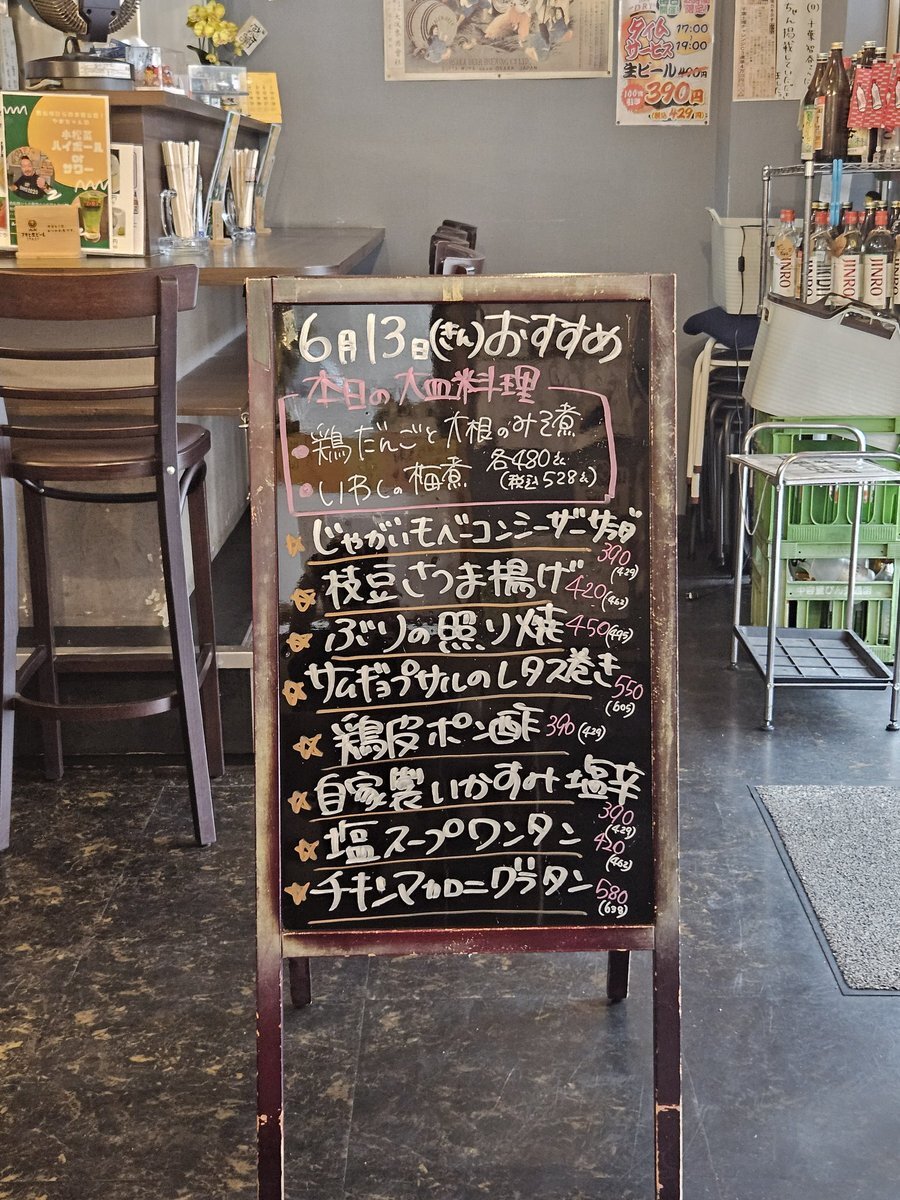 タイム
サービス
17:00
19:00
生ビール 490円
100円引き
390円
(税込429円)
小松菜
ハイボール
or
サワー
JINRO
JINRO
JINRO
JINRO
6月13日(きん)おすすめ
本日の大皿料理
・鶏だんごと大根のみそ煮
・いわしの梅煮 各480円
(税込528円)
☆じゃがいもベーコンシーザーサラダ
390
(429)
☆枝豆さつま揚げ 420(462)
☆ぶりの照り焼 450(495)
☆サムギョプサルのレタス巻き
550
(605)
☆鶏皮ポン酢 390(429)
☆自家製いかすみ塩辛
390
(429)
☆塩スープワンタン 420
(462)
☆チキンマカロニグラタン 580
(638)